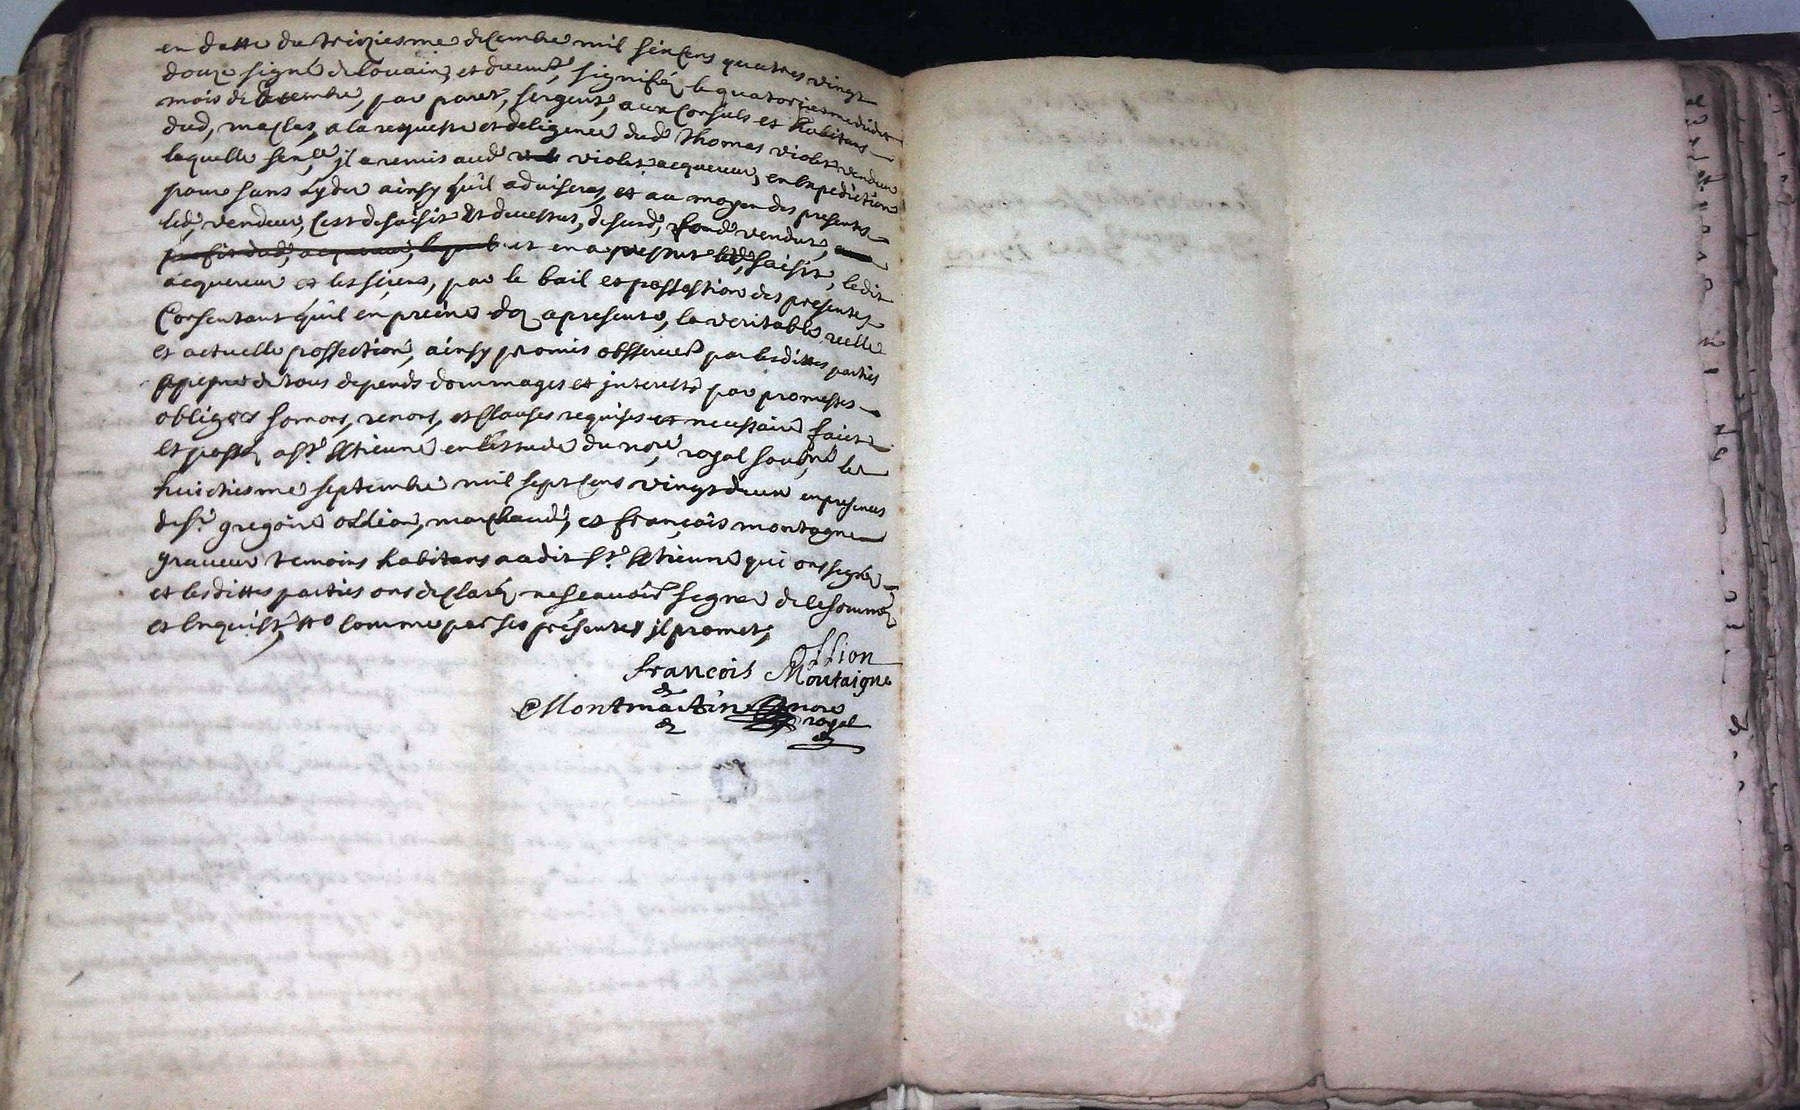 en datte du treiziesme decembre mil six cens quatres vingt
douze signé delouain, et deument, signifié le quatorziesme dudit
mois de decembre, par paret, sergent, aux Consuls et habitans
dud, maclas, a la requeste et deligence dud, Thomas violet vendeur
laquelle sence, jl a remis aud, violet acquereur, en Expedition
pour sans ayder ainsy quil advisera, et au moyen des presentes
led, vendeur, sest desaisit et devestut, desusd, fond vendut,
et en a vestut et saisit, ledit
acquereur et les siens, par le bail et possession des presentes
Consentant quil en preine des a presente, la veritable reelle
et actuelle possection, ainsy promis observer par lesdittes parties
a peine de tous depends dommages et jnterests par promesses
obligõns somons, renons, et Clauses requises et necessaire faict
et passé a St Etienne en lestude du nore royal soubné le
huictiesme septembre mil sept cens vingt deux en presence
de sr gregoire ollion, marchand, et françois montagne
graveur temoins habitans audit St Etienne qui ont signé
et lesdittes parties ons declaré ne scavoir signer de ce sommé
et Enquis, comme par ses présentes jl promet,
Ollion
françois Montaigne
Montmartin nore
royal